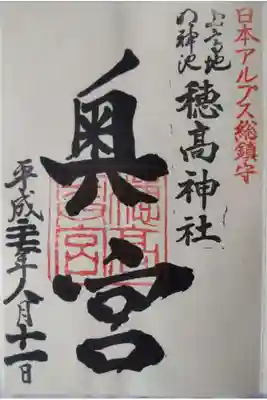 日本アルプス総鎮守
上高地
明神池
穂髙神社
奥宮
平成二十七年八月十一日